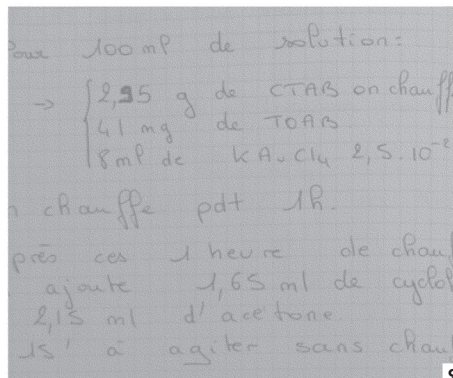 Pour 100 ml de solution:
→ 2,95 g de CTAB on chauff
41 mg de TOAB
8 ml de KAuCl4 2,5.10⁻²
chauffe pdt 1h.
près ces 1 heure de chau
ajoute 1,65 ml de cyclo
2,15 ml d'acetone
15' à agiter sans chau